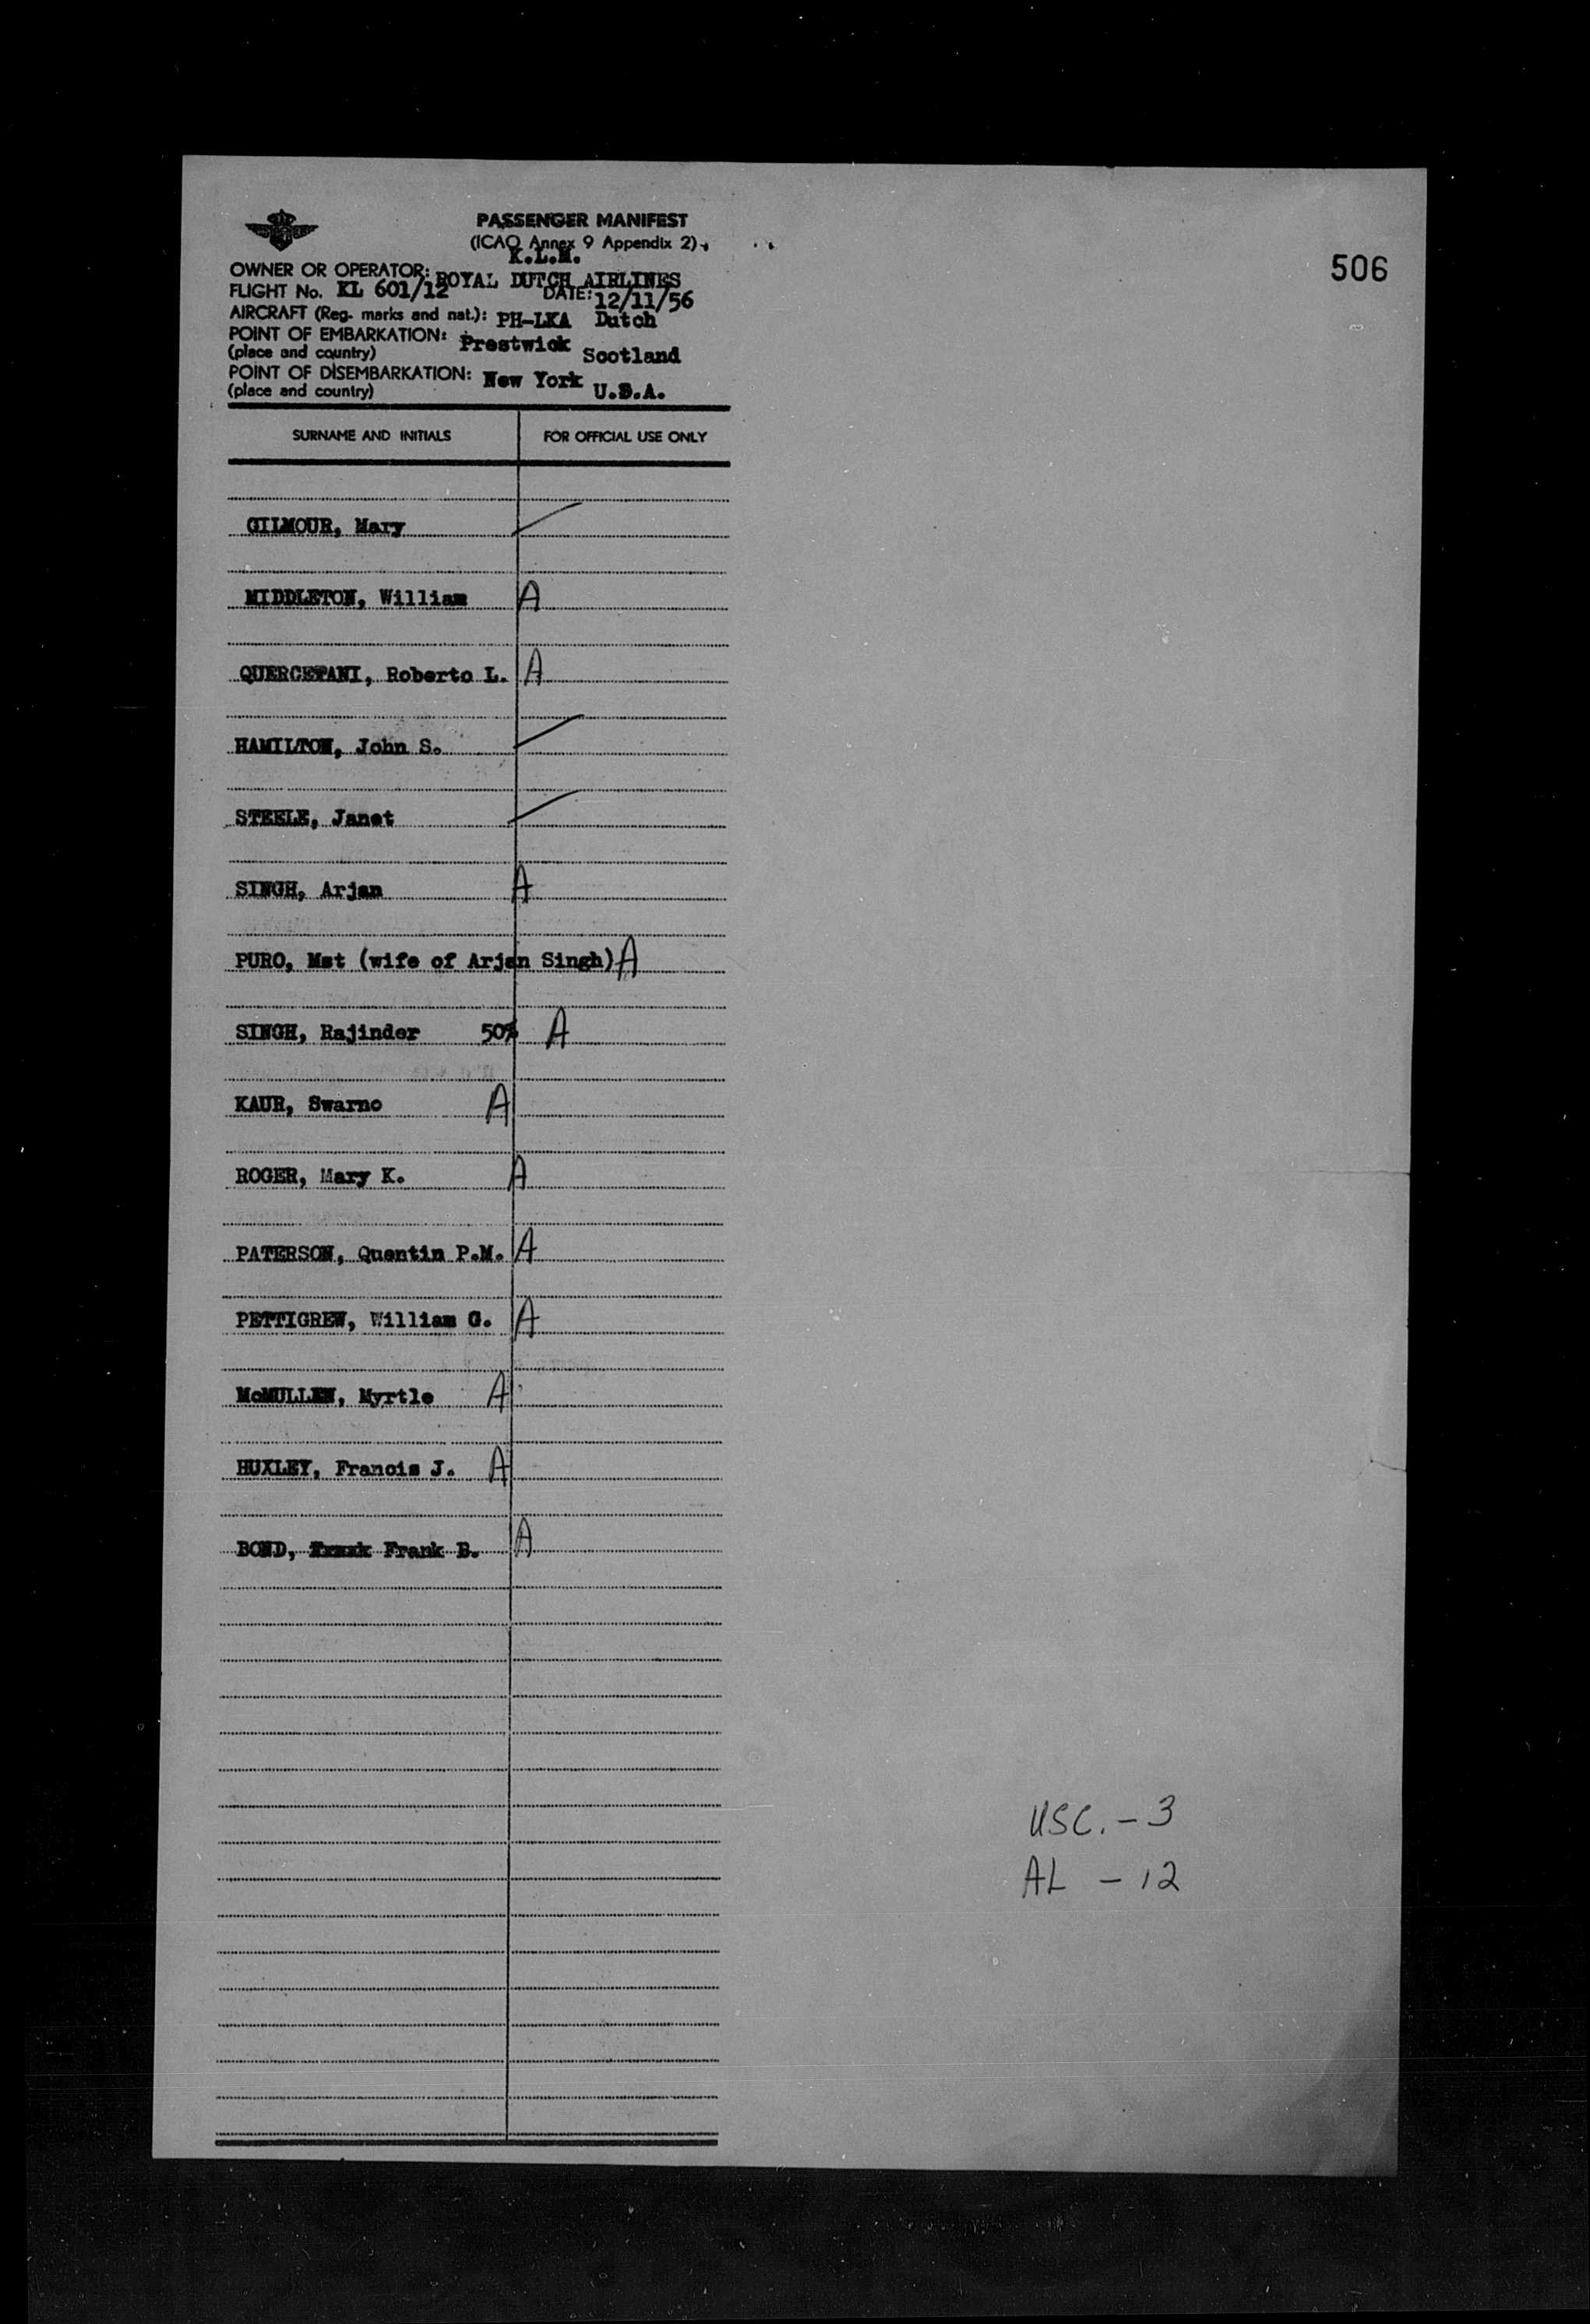 PASSENGER MANIFEST
(ICAO Annex 9 Appendix 2)
506
K.L.M.
OWNER OR OPERATOR: ROYAL DUTCH AIRLINES
FLIGHT No. KL 601/12 DATE: 12/11/56
AIRCRAFT (Reg. marks and nat.): PH-LKA Dutch
POINT OF EMBARKATION: Prestwick Scotland
(place and country)
POINT OF DISEMBARKATION: New York U.S.A.
(place and country)
SURNAME AND INITIALS FOR OFFICIAL USE ONLY
GILMOUR, Mary
MIDDLETON, William A
QUERCETANI, Roberto L. A
HAMILTON, John S.
STEELE, Janet
SINGH, Arjan A
PURO, Mst (wife of Arjan Singh) A
SINGH, Rajinder 50% A
KAUR, Swarno A
ROGER, Mary K. A
PATERSON, Quentin P.M. A
PETTIGREW, William G. A
McMULLEN, Myrtle A
HUXLEY, Francis J. A
BOND, Frank B. A
USC. - 3
AL - 12